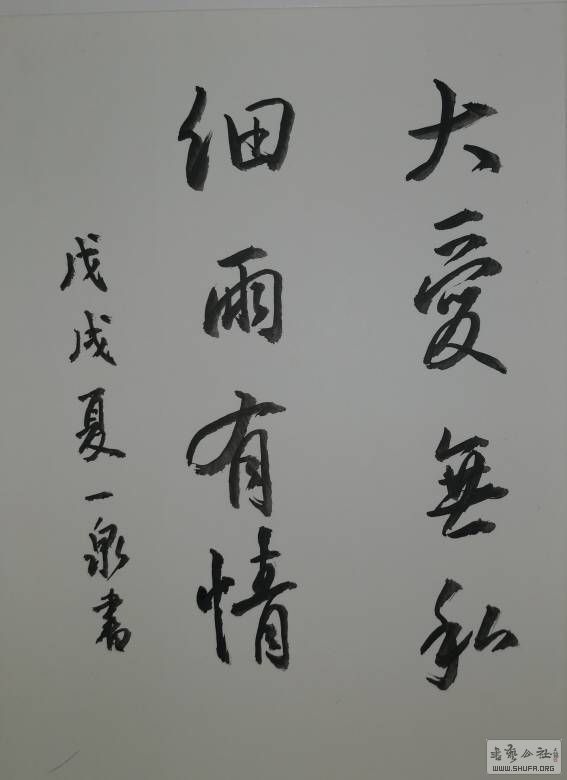 大愛無私
细雨有情
戊戌夏一泉书
书艺公社
WWW.SHUFA.ORG